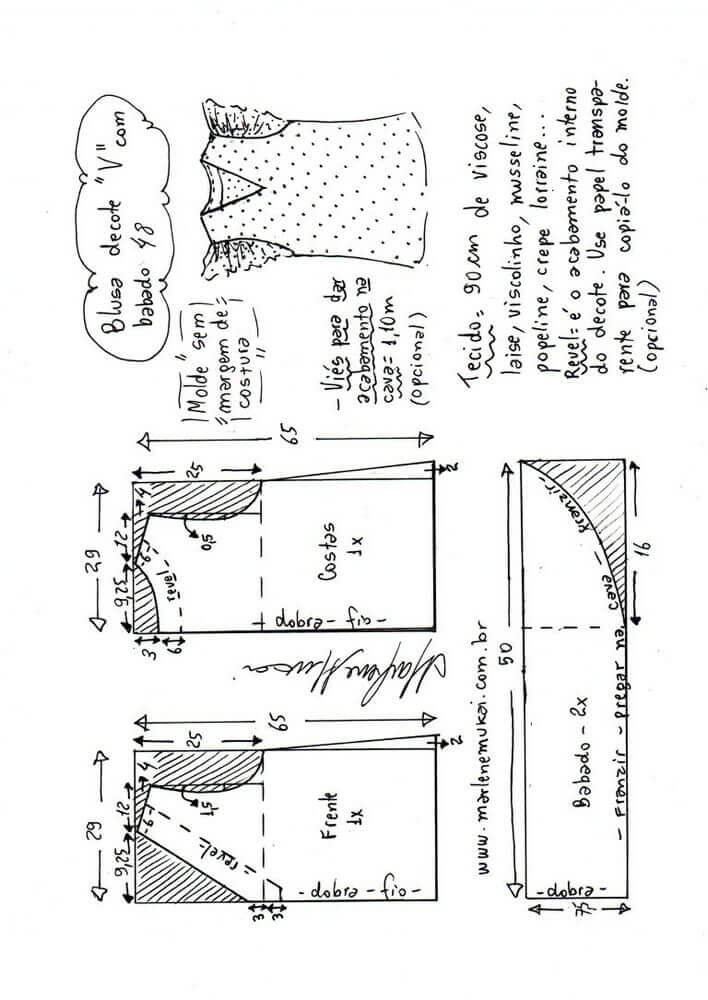 Blusa decote "V" com
babado 48
Molde sem
margem de
costura
- Viés para dar
acabamento na
cava = 1,10m
(opcional)
Tecido = 90cm de viscose,
laise, viscolinho, musseline,
popeline, crepe lorraine...
Revel = é o acabamento interno
do decote. Use papel transpa-
rente para copiá-lo do molde.
(opcional)
29
9,25
12
4
25
65
6
revel
1,5
3
3
Frente
1x
- fio - dobra -
2
29
9,25
12
4
25
65
3
6
6
revel
0,5
Costas
1x
- fio - dobra
2
Marlene Mukai
www.marlenemukai.com.br
50
16
- dobra -
Babado - 2x
- Franzir - pregar na cava - Franzir -